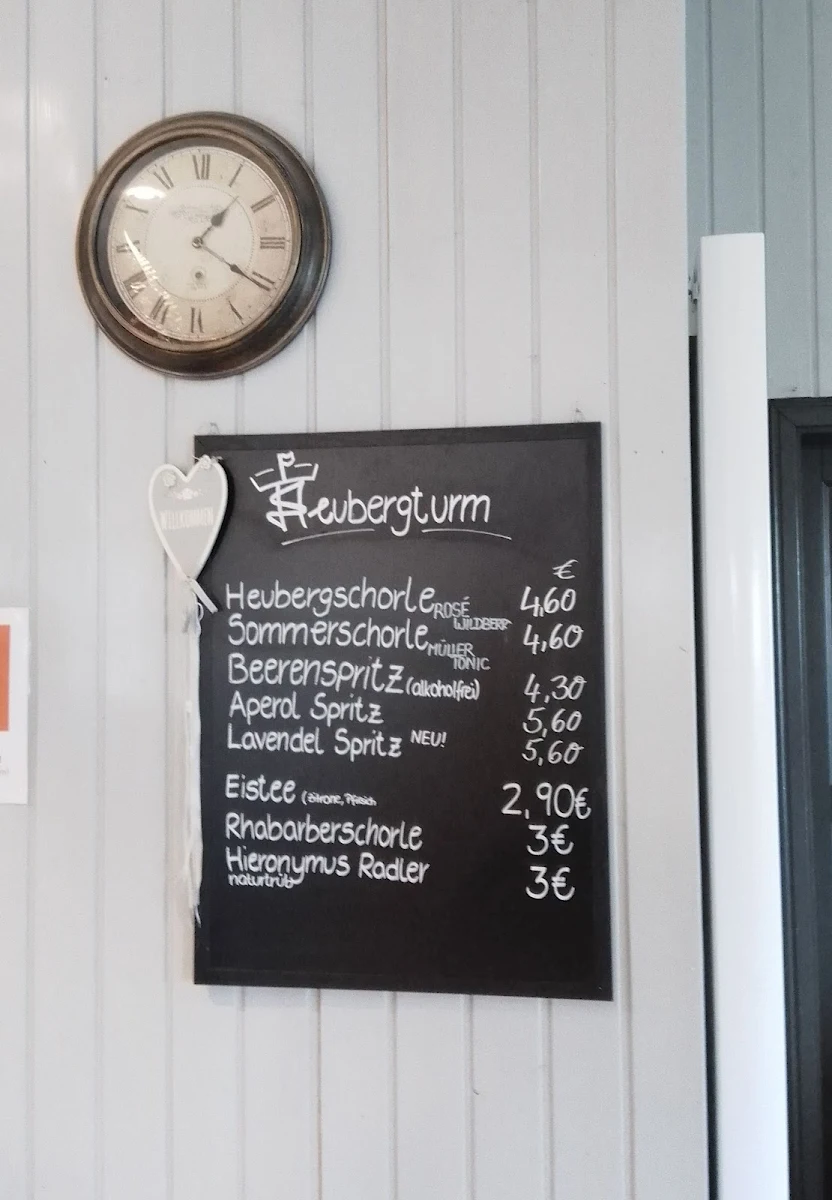 WILLKOMMEN
Heubergturm
€
Heubergschorle ROSÉ 4,60
WILDBERRY
Sommerschorle MÜLLER 4,60
TONIC
Beerenspritz (alkoholfrei) 4,30
Aperol Spritz 5,60
Lavendel Spritz NEU! 5,60
Eistee (Zitrone, Pfirsich 2,90€
Rhabarberschorle 3€
Hieronymus Radler 3€
naturtrüb